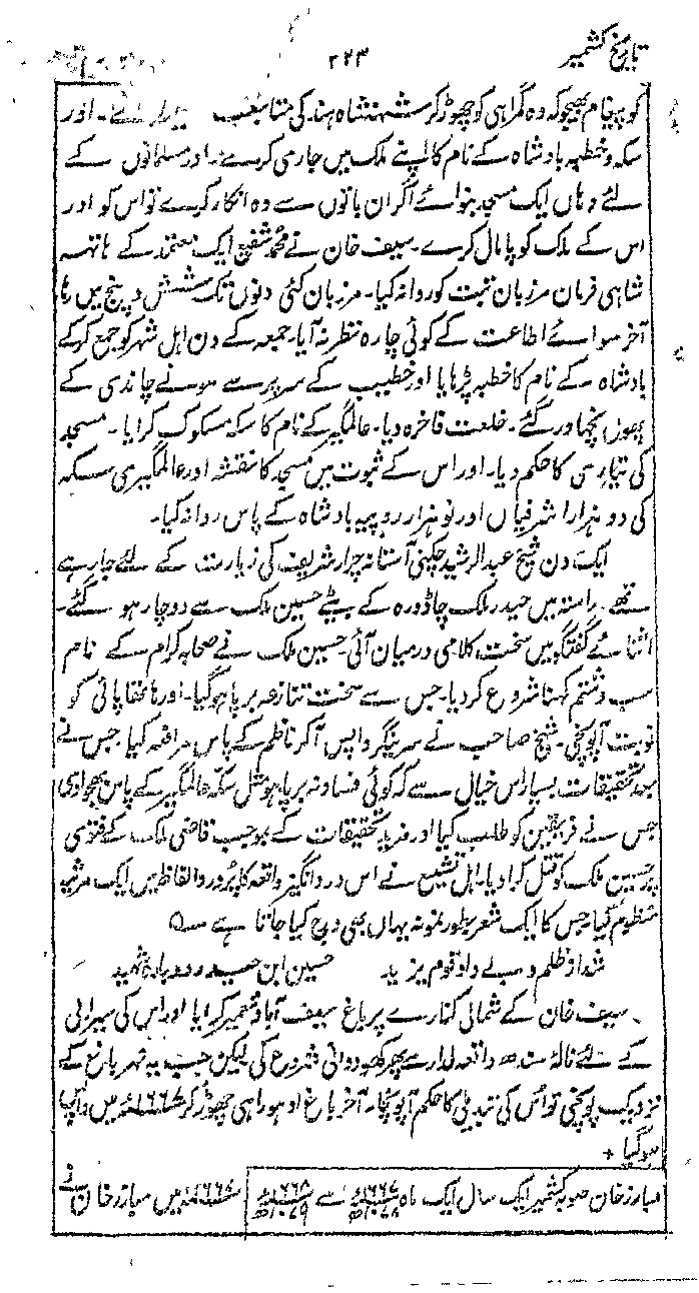 تاریخ کشمیر
۲۲۳
کو پیغام بھیجو کہ وہ گمراہی کو چھوڑ کر شہنشاہ ہند کی متابعت اور
سکہ و خطبہ بادشاہ کے نام کا اپنے ملک میں جاری کرے۔ اور مسلمانوں کے
لئے وہاں ایک مسجد بنوائے اگر ان باتوں سے وہ انکار کرے تو اس کو اور
اس کے ملک کو پامال کرے۔ سیف خان نے محمد شفیع ایک معتمد کے ہاتھ
شاہی فرمان مرزبان تبت کو روانہ کیا۔ مرزبان کئی دنوں تک شش و پنج میں رہا
آخر سوائے اطاعت کے کوئی چارہ نظر نہ آیا۔ جمعہ کے دن اہل شہر کو جمع کرکے
بادشاہ کے نام کا خطبہ پڑہایا اور خطیب کے سر پر سے سونے چاندی کے
پھول نچھاور کئے۔ خلعت فاخرہ دیا۔ عالمگیر کے نام کا سکہ مسکوک کرایا۔ مسجد
کی تیاری کا حکم دیا۔ اور اس کے ثبوت میں مسجد کا نقشہ اور عالمگیری سکہ
کی دو ہزار اشرفیاں اور نو ہزار روپیہ بادشاہ کے پاس روانہ کیا۔
ایک دن شیخ عبدالرشید چکنی آستانہ چرار شریف کی زیارت کے لئے جا رہے
تھے۔ راستہ میں حیدر ملک چاڈورہ کے بیٹے حسین ملک سے دوچار ہو گئے۔
اثنائے گفتگو میں سخت کلامی درمیان آئی۔ حسین ملک نے صحابہ کرام کے نام
سب و شتم کہنا شروع کر دیا۔ جس سے سخت تنازعہ برپا ہوگیا۔ اور ہاتھا پائی کو
نوبت آپہونچی۔ شیخ صاحب نے سرینگر واپس آکر ناظم کے پاس مرافعہ کیا جس نے
بعد تحقیقات بسیار اس خیال سے کہ کوئی فساد نہ برپا ہو مثل سکہ عالمگیر کے پاس بھجوادی
جس نے فریقین کو طلب کیا اور مزید تحقیقات کے بموجب قاضی ملک کے فتوی
پر حسین ملک کو قتل کرا دیا۔ اہل تشیع نے اس درد انگیز واقعہ کا پر زور الفاظ میں ایک مرثیہ
منظوم کیا جس کا ایک شعر بطور نمونہ یہاں بھی درج کیا جاتا ہے
شد از ظلم و بے داد قوم یزید حسین ابن حیدر دوبارہ شہید
سیف خان کے شمالی کنارے پر باغ سیف آباد تعمیر کرایا اور اس کی سیرابی
کے لئے نالہ سندھ واقعہ لار سے نہر کھودوائی شروع کی لیکن جب یہ نہر باغ کے
نزدیک پہونچی تو اس کی تبدیلی کا حکم آپہونچا۔ آخر باغ ادہورا ہی چھوڑ کر ۱۶۶۷ء میں واپس
ہوگیا +
مبارز خان صوبہ کشمیر ایک سال ایک ماہ ۱۶۶۷ء ۱۰۷۸ھ سے ۱۶۶۸ء ۱۰۷۹ھ
۱۶۶۷ء میں مبارز خان نے